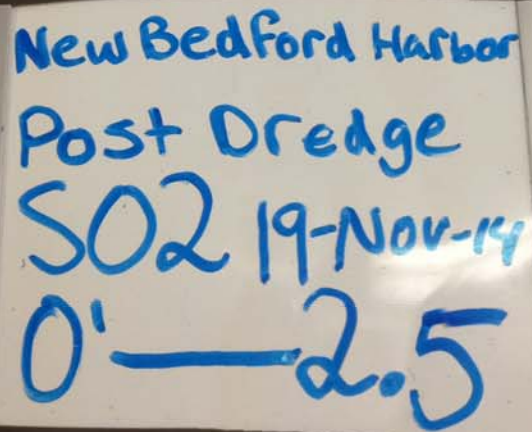 New Bedford Harbor
Post Dredge
S02 19-Nov-14
0'—2.5